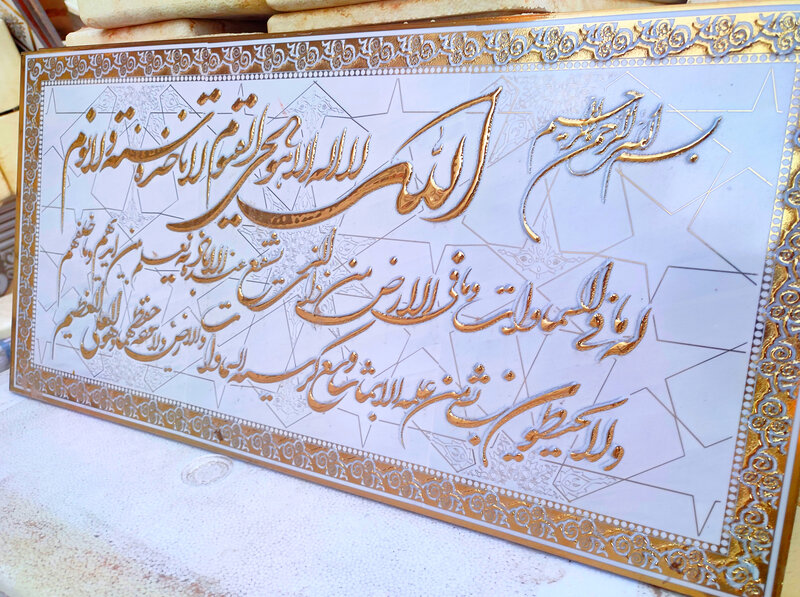 بسم الله الرحمن الرحیم
الله لا اله الا هو الحی القیوم لا تاخذه سنة و لا نوم
له ما فی السماوات و ما فی الارض من ذا الذی یشفع عنده الا باذنه یعلم ما بین ایدیهم و ما خلفهم
و لا یحیطون بشئ من علمه الا بما شاء وسع کرسیه السماوات و الارض و لا یوده حفظهما و هو العلی العظیم